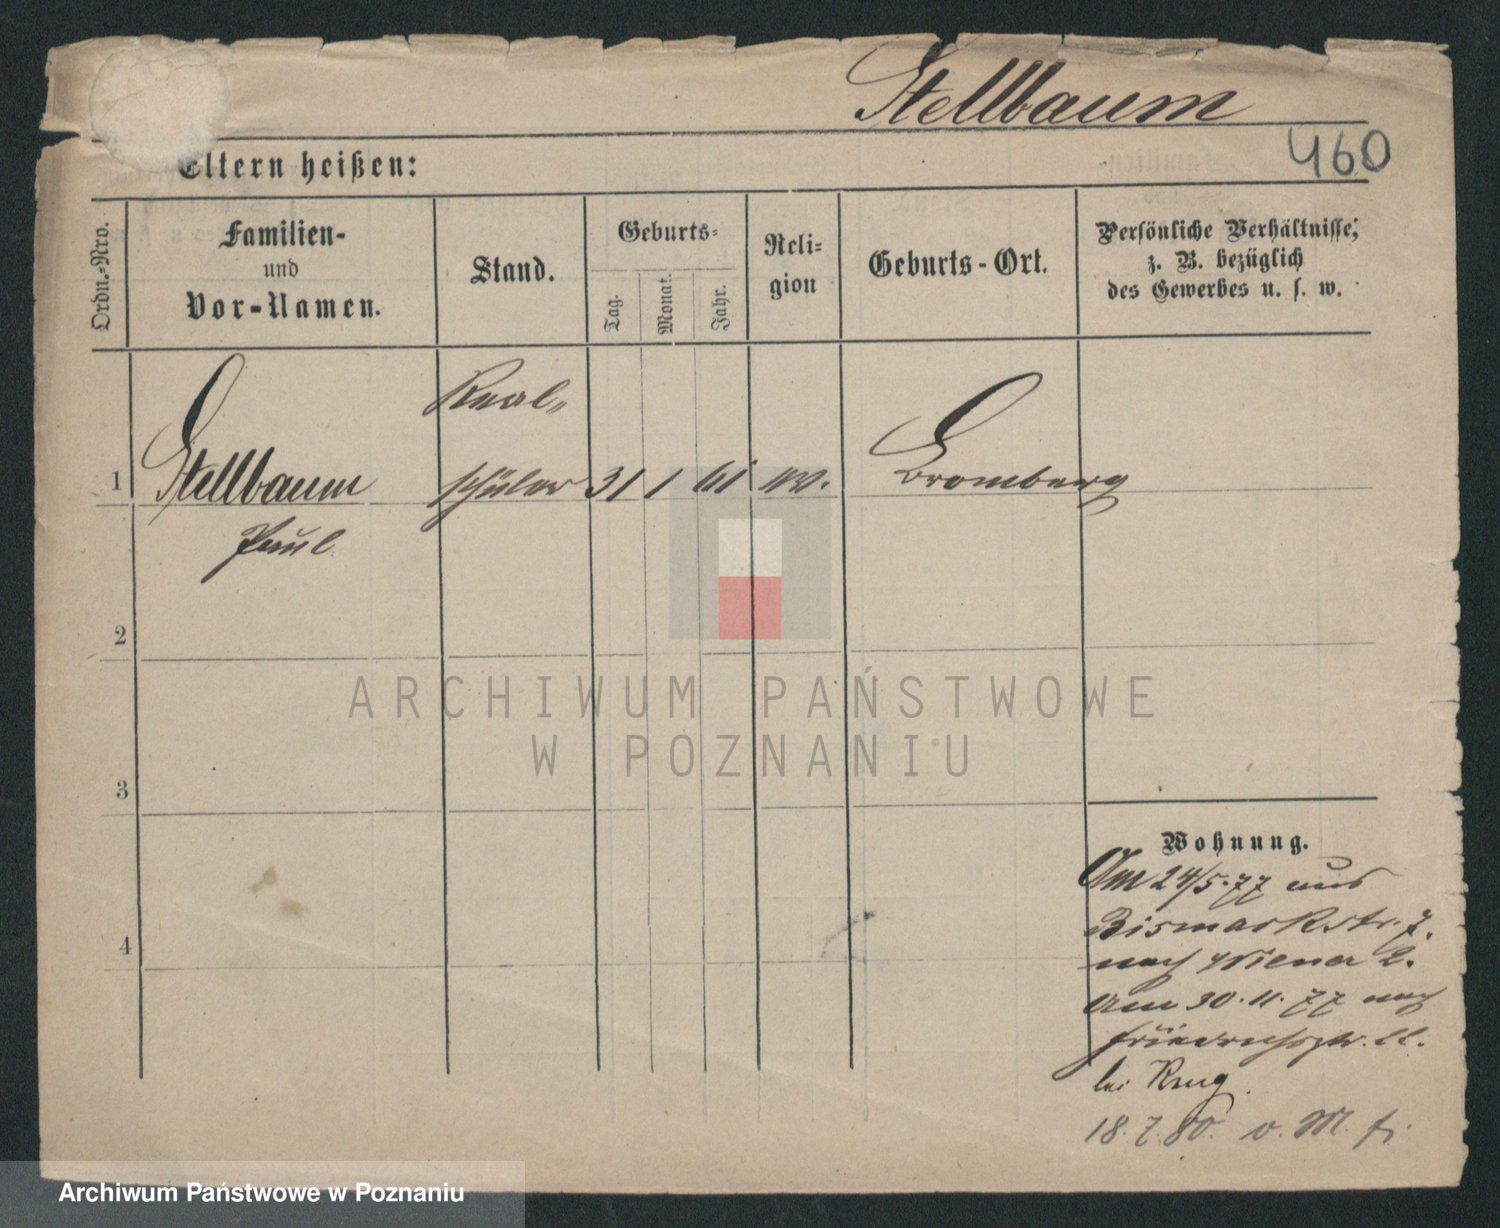 Stellbaum
460
Eltern heißen:
Ordn.-Nro.
Familien-
und
Vor-Namen.
Stand.
Geburts-
Tag.
Monat.
Jahr.
Reli-
gion
Geburts-Ort.
Persönliche Verhältnisse,
z. B. bezüglich
des Gewerbes u. s. w.
Real-
1 Stellbaum schüler 31 1 61 Bromberg
Paul
2
ARCHIWUM PAŃSTWOWE
W POZNANIU
3
Wohnung.
Am 24/5.77 aus
Bismarkstr. 7.
nach Wiener 2.
4
Am 30.11.77 nach
Friedrichsstr. 22.
bei Krug
18.7.80. v. M.
Archiwum Państwowe w Poznaniu